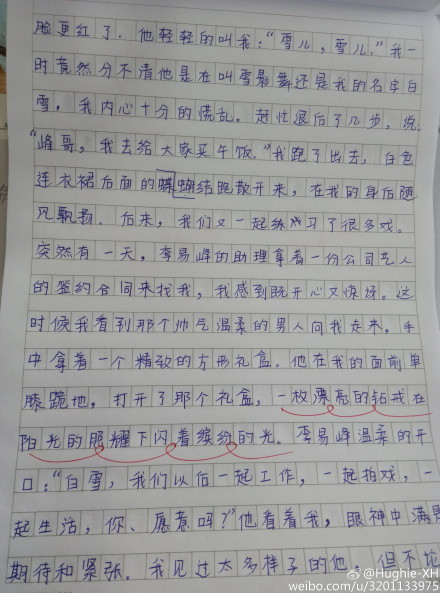 脸更红了。他轻轻的叫我:“雪儿,雪儿。”我一
时竟然分不清他是在叫雪影舞还是我的名字白
雪。我内心十分的慌乱。赶忙退后了几步,说
“峰哥,我去给大家买午饭。”我跑了出去,白色
连衣裙后面的蝴蝶结跑散开来,在我的身后随
风飘扬。后来,我们又一起练习了很多戏。
突然有一天,李易峰的助理拿着一份公司艺人
的签约合同来找我,我感到既开心又惊讶。这
时候我看到那个帅气温柔的男人向我走来,手
中拿着一个精致的方形礼盒。他在我的面前单
膝跪地,打开了那个礼盒,一枚漂亮的钻戒在
阳光的照耀下闪着缤纷的光。李易峰温柔的开
口:“白雪,我们以后一起工作,一起拍戏,一
起生活,你、愿意吗?”他看着我,眼神中满是
期待和紧张。我见过太多样子的他,但不论
@Hughie-XH
weibo.com/u/3201133975